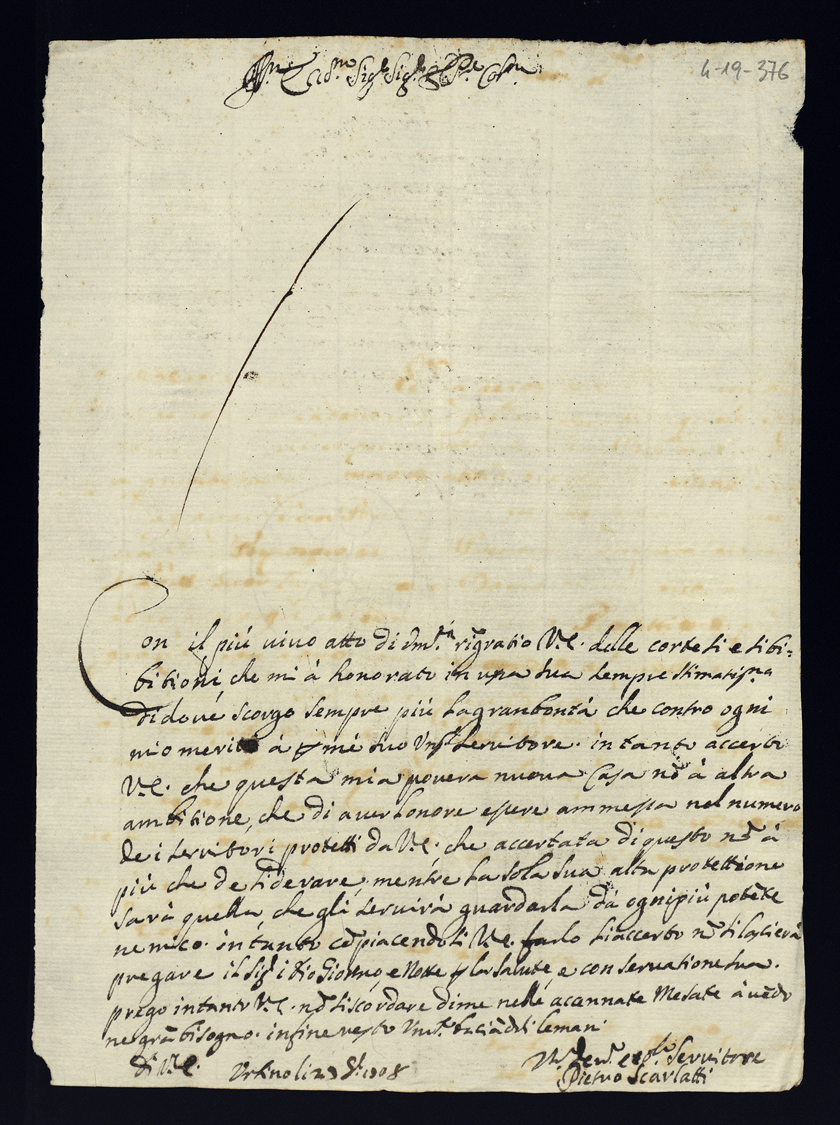 4-19-376
Con il più vivo atto di Um.tà rigratio V.E. delle cortesi esibi=
bitioni, che mi à honorato in una sua sempre stimatis.ma
di dove scorgo sempre più la gran bontà che contro ogni
mio merito à p mé suo servitore. in tanto accerto
V.E. che questa mia povera nuova Casa nō à altra
ambitione, che di aver honore essere ammessa nel numero
de i servitori protetti da V.E. che accertata di questo nō à
più che desiderare, mentre la sola sua alta protettione
sarà quella, che gli servirà guardarla da ogni più potēte
nemico. in tanto cōpiacendosi V.E. farlo si accerto nō si lascierà
pregare il Sig.r Idio Giorno e Notte p la salute e conservatione sua.
prego intanto V.E. nō si scordare di me nelle accannate Mesate avēdo
ne grā bisogno. in fine resto
di V.E. Urbino li 1708
Servitore
Pietro Scarlatti